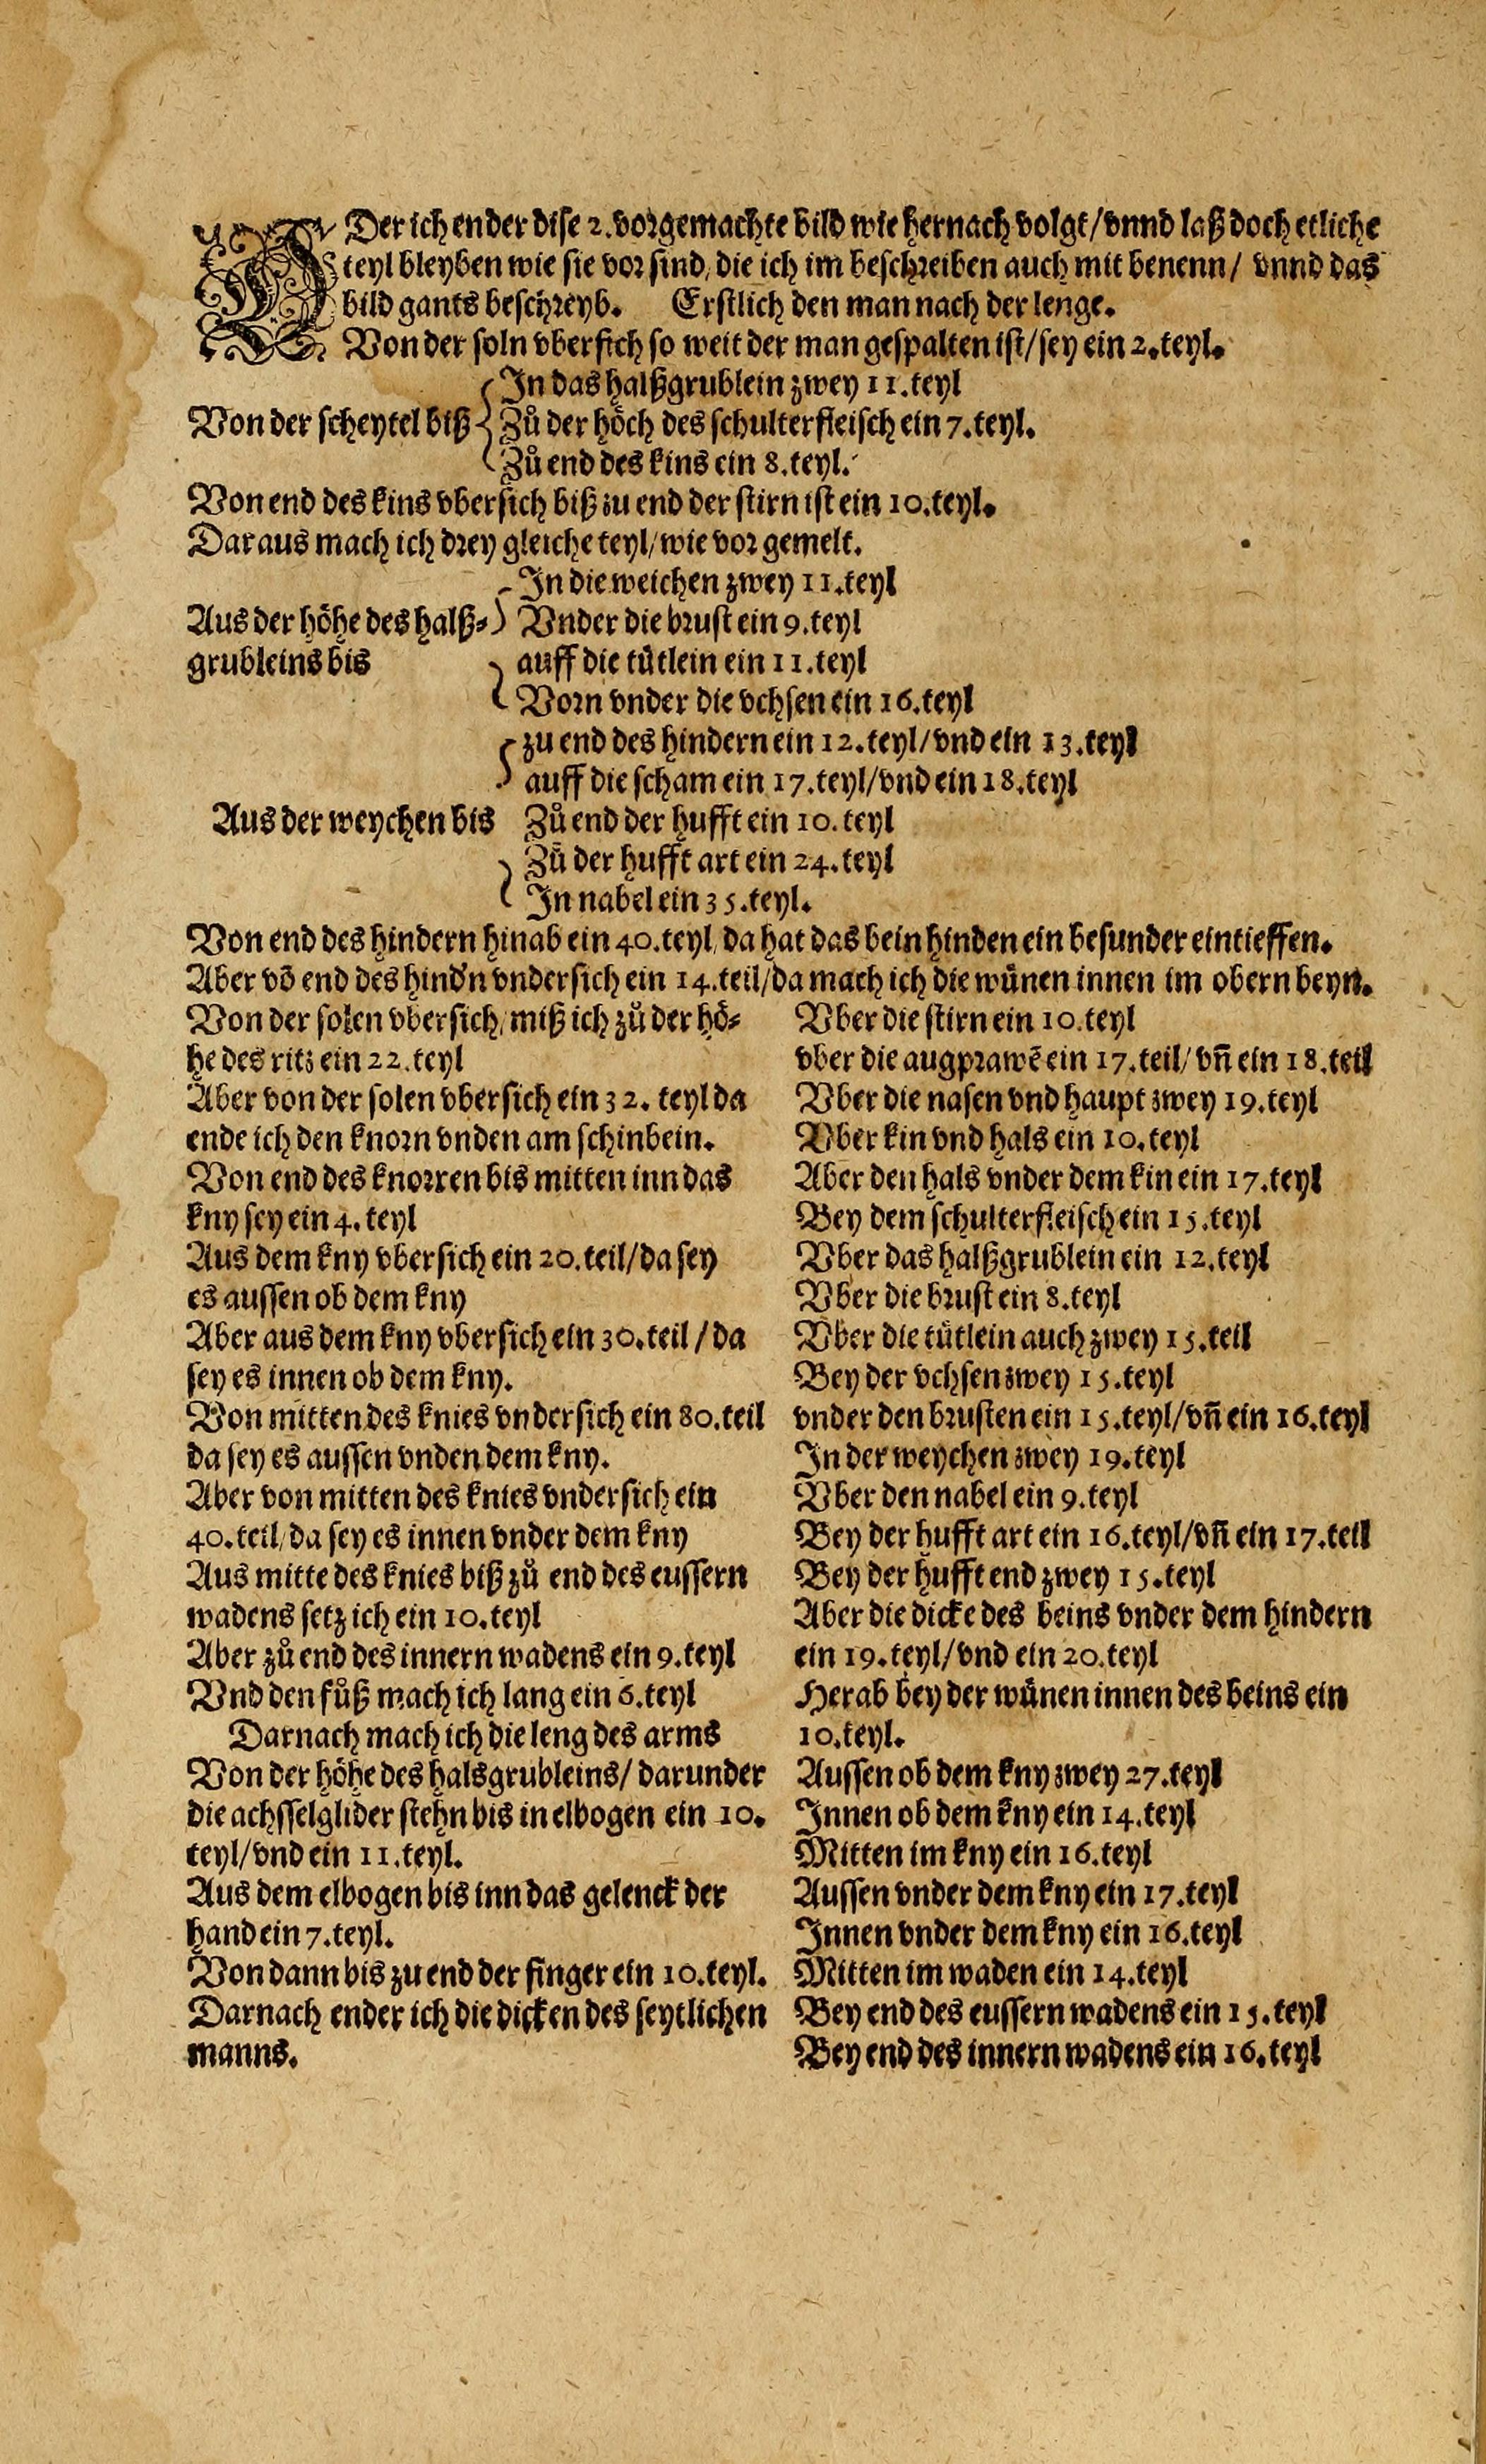 JDer ich ender dise 2. vorgemachte bild wie hernach volgt/vnnd laß doch etliche
teyl bleyben wie sie vor sind/die ich im beschreiben auch mit benenn/ vnnd das
bild gants beschreyb. Erstlich den man nach der lenge.
Von der soln vbersich so weit der man gespalten ist/sey ein 2.teyl.
In das halßgrublein zwey 11.teyl
Von der scheytel biß Zů der höch des schulterfleisch ein 7.teyl.
Zů end des kins ein 8.teyl.
Von end des kins vbersich biß zu end der stirn ist ein 10.teyl.
Daraus mach ich drey gleiche teyl/wie vor gemelt.
In die weichen zwey 11.teyl
Aus der höhe des halß⸗ Vnder die brust ein 9.teyl
grubleins bis auff die tůtlein ein 11.teyl
Vorn vnder die vchsen ein 16.teyl
zu end des hindern ein 12.teyl/vnd ein 13.teyl
auff die scham ein 17.teyl/vnd ein 18.teyl
Aus der weychen bis Zů end der hufft ein 10.teyl
Zů der hufft art ein 24.teyl
In nabel ein 35.teyl.
Von end des hindern hinab ein 40.teyl/da hat das bein hinden ein besunder eintieffen.
Aber võ end des hind'n vndersich ein 14.teil/da mach ich die wůnen innen im obern beyn.
Von der solen vbersich/miß ich zů der hö⸗
he des ritz ein 22.teyl
Aber von der solen vbersich ein 32. teyl da
ende ich den knorn vnden am schinbein.
Von end des knorren bis mitten inn das
kny sey ein 4.teyl
Aus dem kny vbersich ein 20.teil/da sey
es aussen ob dem kny
Aber aus dem kny vbersich ein 30.teil/da
sey es innen ob dem kny.
Von mitten des knies vndersich ein 80.teil
da sey es aussen vnden dem kny.
Aber von mitten des knies vndersich ein
40.teil/da sey es innen vnder dem kny
Aus mitte des knies biß zů end des eussern
wadens setz ich ein 10.teyl
Aber zů end des innern wadens ein 9.teyl
Vnd den fůß mach ich lang ein 6.teyl
Darnach mach ich die leng des arms
Von der höhe des halsgrubleins/darunder
die achsselglider stehn bis in elbogen ein 10.
teyl/vnd ein 11.teyl.
Aus dem elbogen bis inn das gelenck der
hand ein 7.teyl.
Von dann bis zu end der finger ein 10.teyl.
Darnach ender ich die dicken des seytlichen
manns.
Vber die stirn ein 10.teyl
vber die augprawẽ ein 17.teil/vñ ein 18.teil
Vber die nasen vnd haupt zwey 19.teyl
Vber kin vnd hals ein 10.teyl
Aber den hals vnder dem kin ein 17.teyl
Bey dem schulterfleisch ein 15.teyl
Vber das halßgrublein ein 12.teyl
Vber die brust ein 8.teyl
Vber die tůtlein auch zwey 15.teil
Bey der vchsen zwey 15.teyl
vnder den brusten ein 15.teyl/vñ ein 16.teyl
In der weychen zwey 19.teyl
Vber den nabel ein 9.teyl
Bey der hufft art ein 16.teyl/vñ ein 17.teil
Bey der hufft end zwey 15.teyl
Aber die dicke des beins vnder dem hindern
ein 19.teyl/vnd ein 20.teyl
Herab bey der wůnen innen des beins ein
10.teyl.
Aussen ob dem kny zwey 27.teyl
Innen ob dem kny ein 14.teyl
Mitten im kny ein 16.teyl
Aussen vnder dem kny ein 17.teyl
Innen vnder dem kny ein 16.teyl
Mitten im waden ein 14.teyl
Bey end des eussern wadens ein 15.teyl
Bey end des innern wadens ein 16.teyl